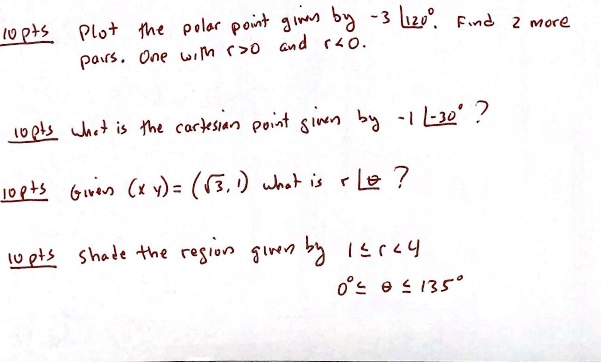 10 pts Plot the polar point given by -3 ∠120°. Find 2 more
pairs. One with r>0 and r<0.
10 pts What is the cartesian point given by -1 ∠-30° ?
10 pts Given (x y) = (√3, 1) what is r ∠θ ?
10 pts Shade the region given by 1 ≤ r < 4
0° ≤ θ ≤ 135°